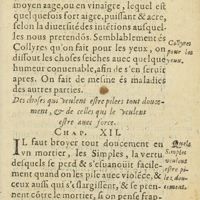 moyen aage, ou en vinaigre, lequel est
quelquefois fort aigre, puissant & acre,
selon la diuersité des intētions ausquel-
les nous pretendōs. Semblablement és
Collyres qu'on fait pour les yeux, on
dissout les choses seiches auec quelque
humeur conuenable, afin de s'en seruir
apres. On fait de mesme és maladies
des autres parties.
Collyres
pour les
yeux.
Des choses qui veulent estre pilees tout douce-
ment, & de celles qui le veulent
estre auec force.
CHAP. XII.
IL faut broyer tout doucement en
vn mortier, les Simples, la vertu
desquels se perd & s'esuanouit facile-
ment quand on les pile auec violéce, &
ceux aussi qui s'eslargissent, & se pren-
nent côtre le mortier, si on pense frap-
Quels
simples
veulent
estre pi-
lez, dou-
cement.